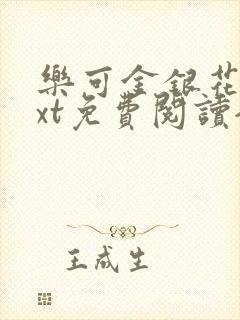 樂可金銀花
xt免費閱讀
王成生